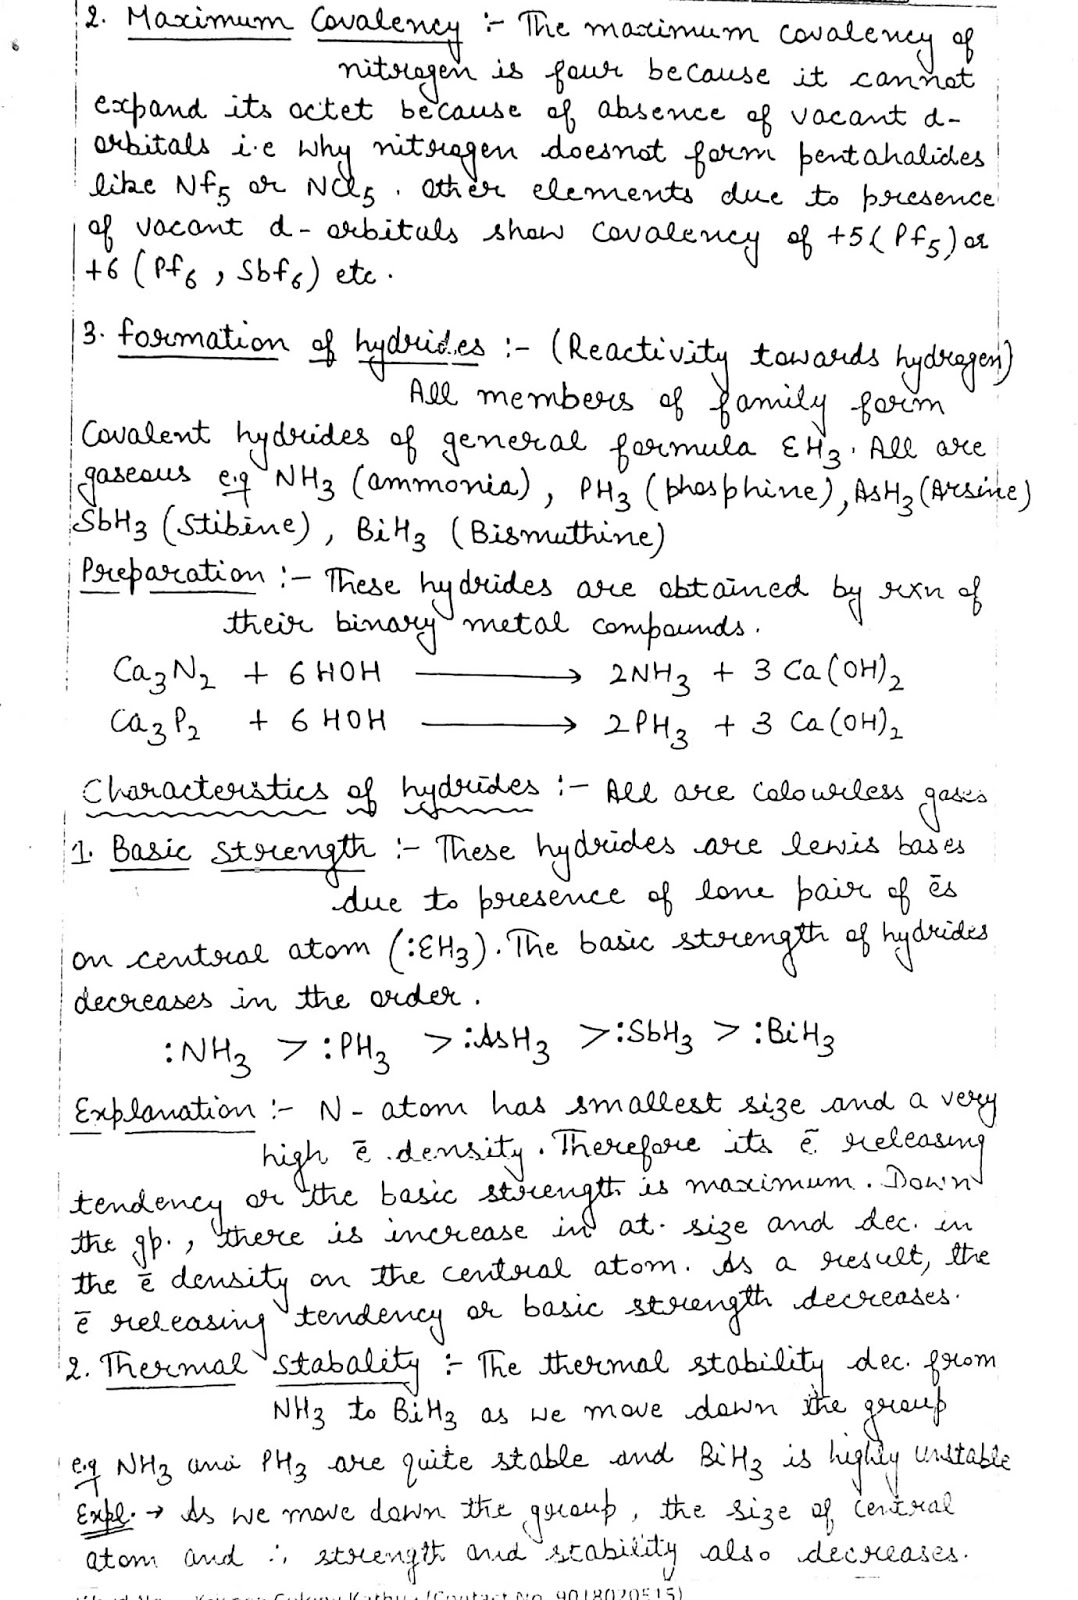 2. Maximum Covalency :- The maximum covalency of
nitrogen is four because it cannot
expand its octet because of absence of vacant d-
orbitals i.e why nitrogen doesnot form pentahalides
like Nf5 or NCl5. Other elements due to presence
of vacant d-orbitals show covalency of +5 (Pf5) or
+6 (Pf6, Sbf6) etc.
3. formation of hydrides :- (Reactivity towards hydrogen)
All members of family form
Covalent hydrides of general formula EH3. All are
gaseous e.g NH3 (ammonia), PH3 (phosphine), AsH3 (Arsine)
SbH3 (Stibine), BiH3 (Bismuthine)
Preparation :- These hydrides are obtained by rxn of
their binary metal compounds.
Ca3N2 + 6 HOH → 2NH3 + 3 Ca(OH)2
Ca3P2 + 6 HOH → 2PH3 + 3 Ca(OH)2
Characteristics of hydrides :- All are colourless gases
1. Basic Strength :- These hydrides are lewis bases
due to presence of lone pair of ēs
on central atom (:EH3). The basic strength of hydrides
decreases in the order.
:NH3 > :PH3 > :AsH3 > :SbH3 > :BiH3
Explanation :- N-atom has smallest size and a very
high ē density. Therefore its ē releasing
tendency or the basic strength is maximum. Down
the gp., there is increase in at. size and dec. in
the ē density on the central atom. As a result, the
ē releasing tendency or basic strength decreases.
2. Thermal Stabality :- The thermal stability dec. from
NH3 to BiH3 as we move down the group
e.g NH3 and PH3 are quite stable and BiH3 is highly unstable
Expl. → As we move down the group, the size of central
atom and ∴ strength and stability also decreases.
(Contact No. 9018020515)